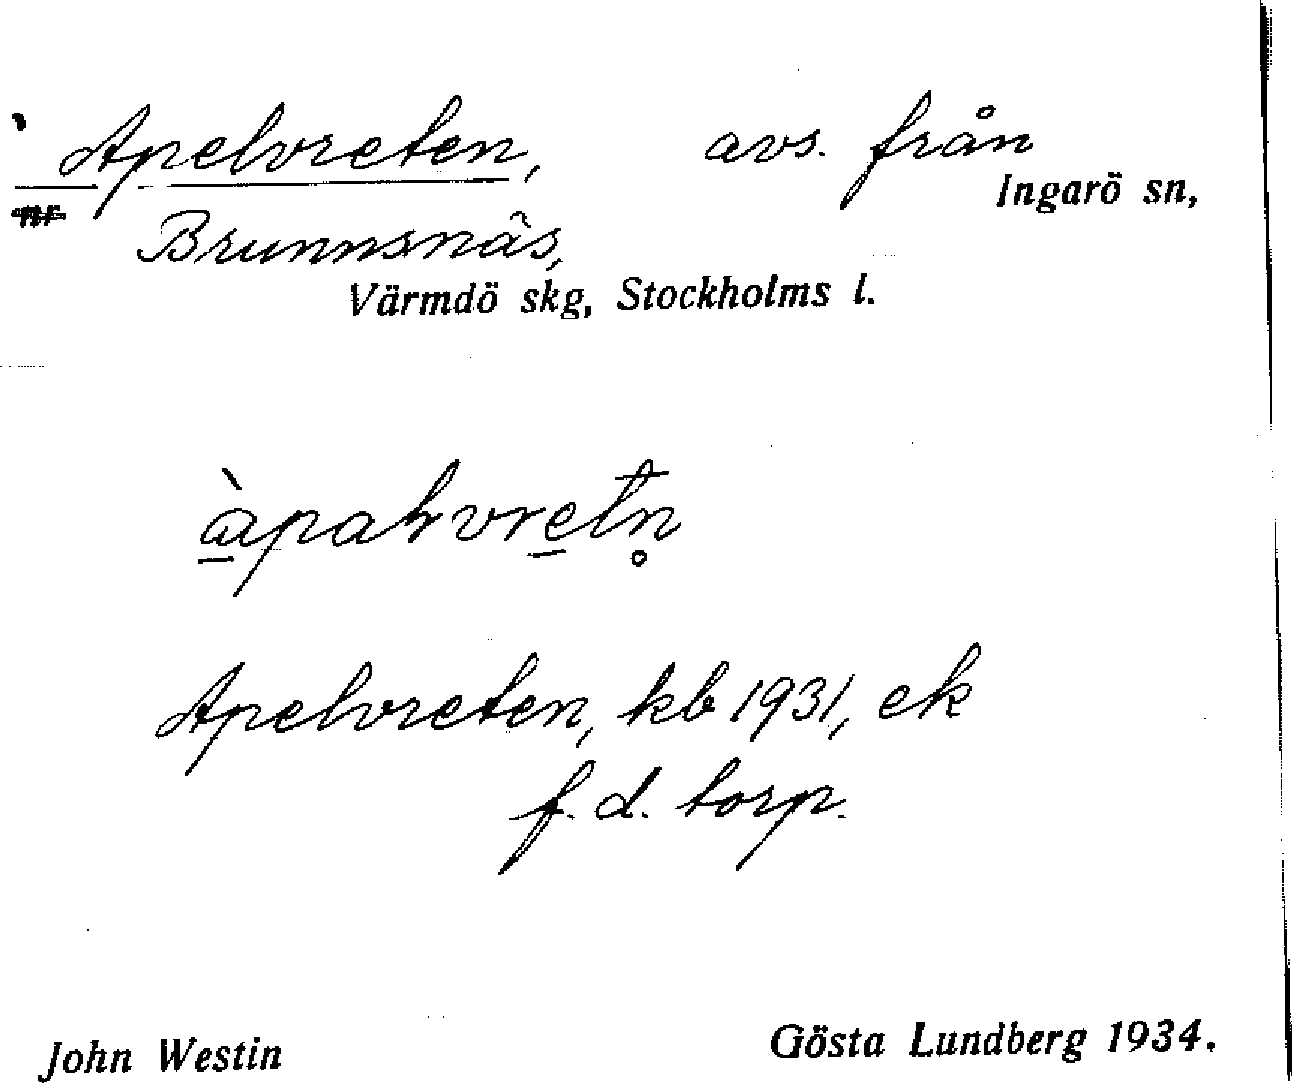 Apelvreten, avs. från
Ingarö sn,
Brunnsnäs,
Värmdö skg, Stockholms l.
Apelvreten, kb 1931, ek
f. d. torp.
John Westin Gösta Lundberg 1934.